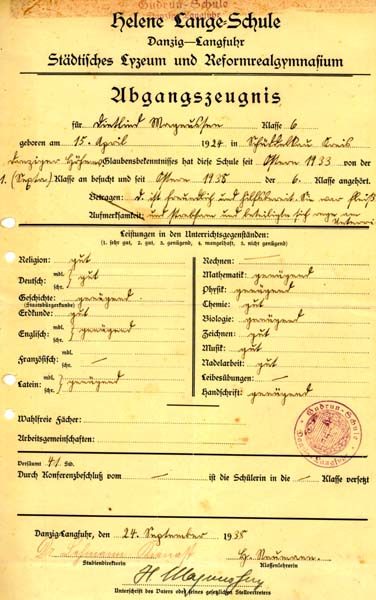 Gudrun-Schule
Helene Lange-Schule
Danzig—Langfuhr
Städtisches Lyzeum und Reformrealgymnasium
Abgangszeugnis
für Dietlind Magnussen Klasse 6
geboren am 15. April 1924 in Kreis
Danziger Höhe Glaubensbekenntnisses hat diese Schule seit Ostern 1933 von der
1. (Septa) Klasse an besucht und seit Ostern 1938 der 6. Klasse angehört.
Betragen: D. ist freundlich und hilfsbereit. Sie war fleißig
Aufmerksamkeit: und strebsam und beteiligte sich rege am Unterricht
Leistungen in den Unterrichtsgegenständen:
(1. sehr gut, 2. gut, 3. genügend, 4. mangelhaft, 5. nicht genügend)
Religion: gut
Deutsch: mdl. schr. } gut
Geschichte: genügend
(Staatsbürgerkunde)
Erdkunde: gut
Englisch: mdl. schr. } genügend
Französisch: mdl. schr. —
Latein: mdl. schr. } genügend
Rechnen: —
Mathematik: genügend
Physik: genügend
Chemie: gut
Biologie: genügend
Zeichnen: gut
Musik: gut
Nadelarbeit: gut
Leibesübungen: —
Handschrift: genügend
Wahlfreie Fächer:
Arbeitsgemeinschaften:
Gudrun-Schule
Versäumt 41 Std.
Durch Konferenzbeschluß vom — ist die Schülerin in die — Klasse versetzt
Danzig-Langfuhr, den 24. September 1938
Studiendirektor
Klassenlehrerin
H. Magnussen
Unterschrift des Vaters oder seines gesetzlichen Stellvertreters